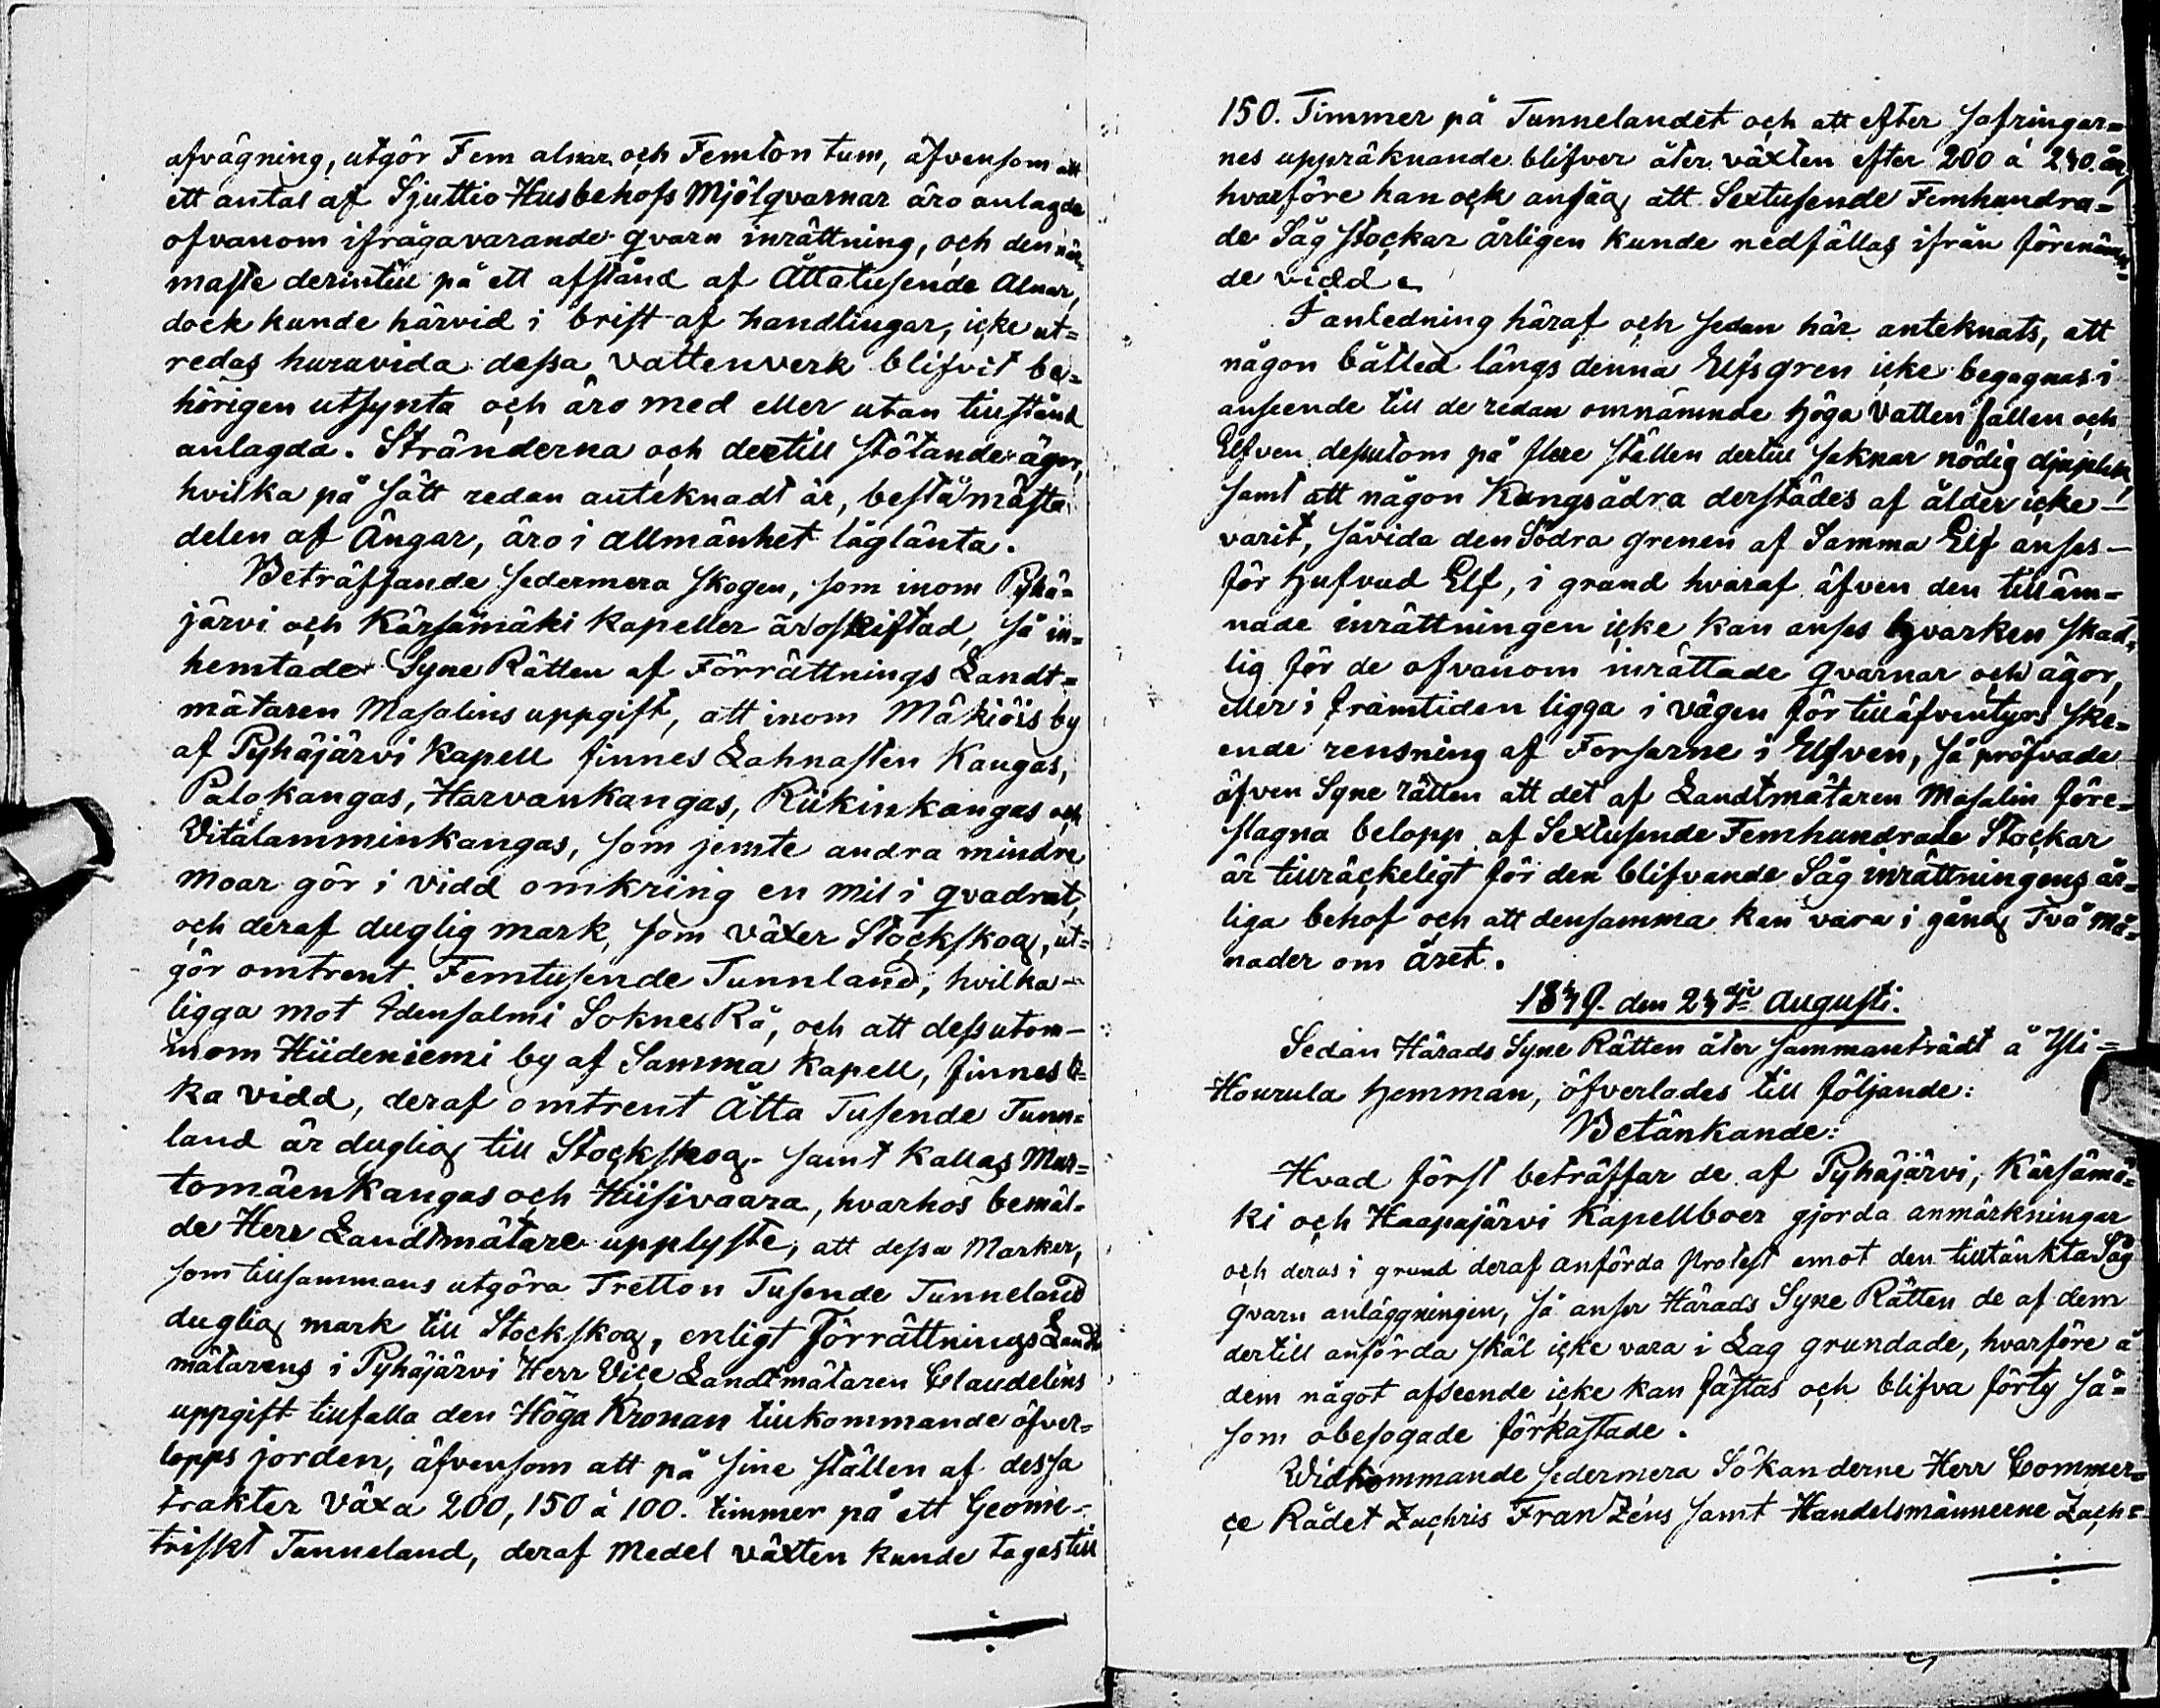 afvägning, utgör Fem alnar och Femton tum, äfvensom att
ett antal af Sjuttio Husbehofs Mjölqvarnar äro anlagde
ofvanom ifrågavarande qvarn inrättning, och den när-
maste derintill på ett afstånd af Åttatusende Alnar,
dock kunde härvid i brist af handlingar, icke ut=
redas huruvida dessa vattenverk blifvit be=
hörigen utsynta och äro med eller utan tillstånd
anlagda. Stränderna och dertill stötande ägor,
hvilka på sätt redan anteknadt är, bestå mästa
delen af Ängar, äro i allmänhet låglänta.
Beträffande sedermera skogen, som inom Pyhä=
järvi och Kärsämäki Kapeller är oskiftad, så in=
hemtade Syne Rätten af Förrättnings Landt=
mätaren Masalins uppgift, att inom Mäkiöis by
af Pyhäjärvi Kapell finnes Lahnasten Kangas,
Palokangas, Harvankangas, Riikinkangas och
Vitälamminkangas, som jemte andra mindre
moar gör i vidd omkring en mil i qvadrat,
och deraf duglig mark, som växer Stockskog, ut=
gör omtrent Femtusende Tunnland, hvilka—
ligga mot Idensalmi Soknes Rå, och att dessutom—
inom Hiideniemi by af Samma Kapell, finnes li=
ka vidd, deraf omtrent Åtta Tusende Tunn=
land är duglig till Stockskog. samt kallas Mur=
tomäenkangas och Hiisivaara, hvarhos bemäl-
de Herr Landtmätare upplyste, att dessa Marker,
som tillsammans utgöra Tretton Tusende Tunneland
duglig mark till Stockskog, enligt Förrättnings Landt
mätarens i Pyhäjärvi Herr Vice Landtmätaren Claudelins
uppgift tillfalla den Höga Kronan tillkommande öfver=
lopps jorden, äfvensom att på sine ställen af dessa
trakter växa 200, 150 à 100. timmer på ett Geome-
triskt Tunneland, deraf Medel växten kunde tagas till
150. Timmer på Tunnelandet och att efter safringar=
nes uppräknande blifver åter växten efter 200 à 240. år,
hvarföre han ock ansåg att Sextusende Femhundra=
de Såg stockar årligen kunde nedfällas ifrån förenämn=
de vidd.
I anledning häraf och sedan här anteknats, att
någon båtled längs denna Elfsgren icke begagnas i
anseende till de redan omnämnde höga Vattenfallen och
Elfven dessutom på flere ställen dertill saknar nödig djuplek,
samt att någon Kungsådra derstädes af ålder icke—
varit, såvida den Södra grenen af Samma Elf anses—
för hufvud Elf, i grund hvaraf äfven den tilläm=
nade inrättningen icke kan anses hvarken skad=
lig för de ofvanom inrättade qvarnar och ägor,
eller i framtiden ligga i vägen för tilläfventyrs ske=
ende rensning af Forsarne i Elfven, så pröfvade
äfven Syne rätten att det af Landtmätaren Masalin före=
slagna belopp af Sextusende Femhundrade Stockar
är tillräckeligt för den blifvande Såg inrättningens år=
liga behof och att densamma kan vara i gång Två må=
nader om året.
1849. den 24dje Augusti.
Sedan Härads Syne Rätten åter sammanträdt å Yli=
Hourula hemman, öfverlades till följande:
Betänkande:
Hvad först beträffar de af Pyhäjärvi, Kärsämä=
ki och Haapajärvi Kapellboer gjorda anmärkningar
och deras i grund deraf anförda Protest emot den tilltänkta Såg
qvarn anläggningen, så anser Härads Syne Rätten de af dem
dertill anförda skäl icke vara i Lag grundade, hvarföre å
dem något afseende icke kan fästas och blifva förty så=
som obefogade förkastade.
Widkommande sedermera Sökanderne Herr Commer=
ce Rådet Zachris Franzéns samt Handelsmännerne Zach=